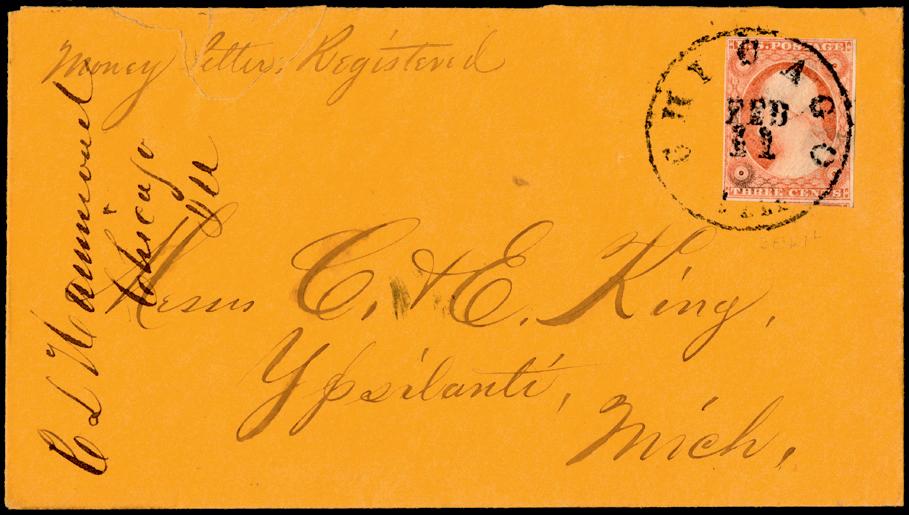 Money letter, Registered
U.S. POSTAGE
CHICAGO
FEB
11
ILL
THREE CENTS
C L Hammond
Chicago
Ill
Messrs C. & E. King,
Ypsilanti,
Mich,